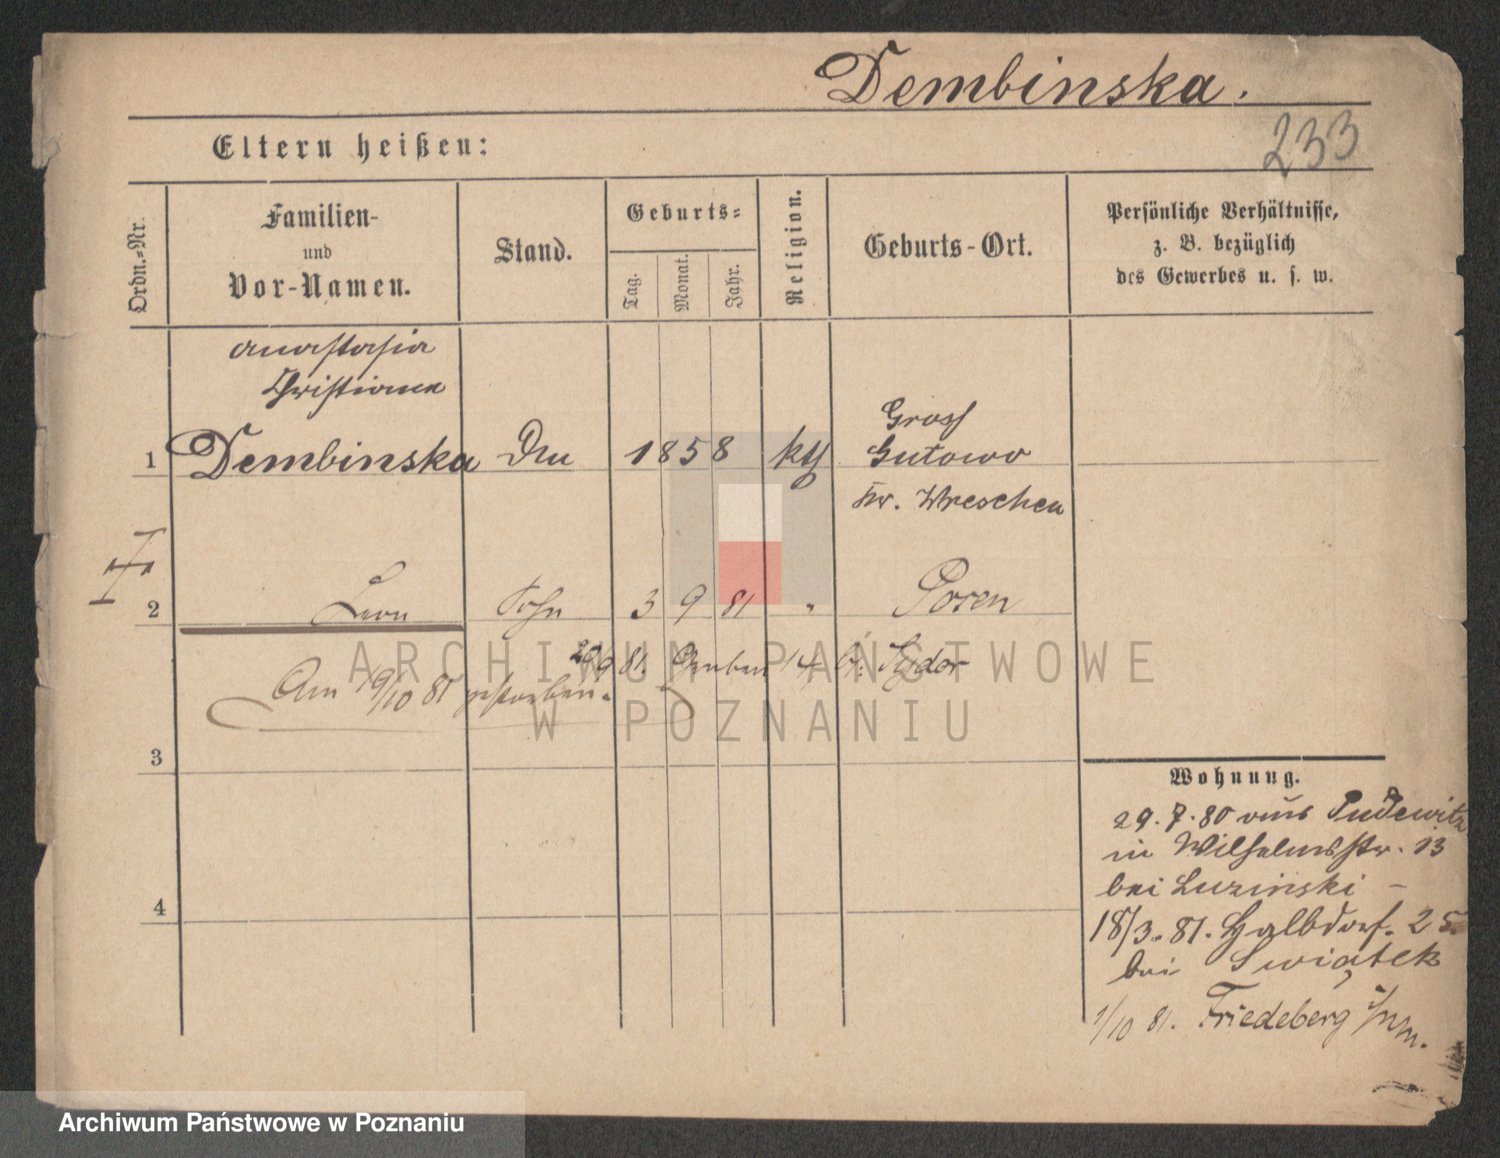 Dembinska.
233
Eltern heißen:
Ordn.-Nr.
Familien-
und
Vor-Namen.
Stand.
Geburts-
Tag.
Monat.
Jahr.
Religion.
Geburts-Ort.
Persönliche Verhältnisse,
z. B. bezüglich
des Gewerbes u. s. w.
Anastasia
Christiana
1 Dembinska 1858 kth Gross
Gutowo
Kr. Wreschen
2 Leon Sohn 3 9 81 " Posen
29 9 81. Graben 14 b. Sydor
Am 19/10 81 gestorben.
3
4
Wohnung.
29.7.80 aus Pudewitz
in Wilhelmsstr. 13
bei Luzinski –
18/3. 81. Halbdorf. 25
bei Swiątek
1/10 81. Friedeberg i/Nm.
ARCHIWUM PAŃSTWOWE
W POZNANIU
Archiwum Państwowe w Poznaniu